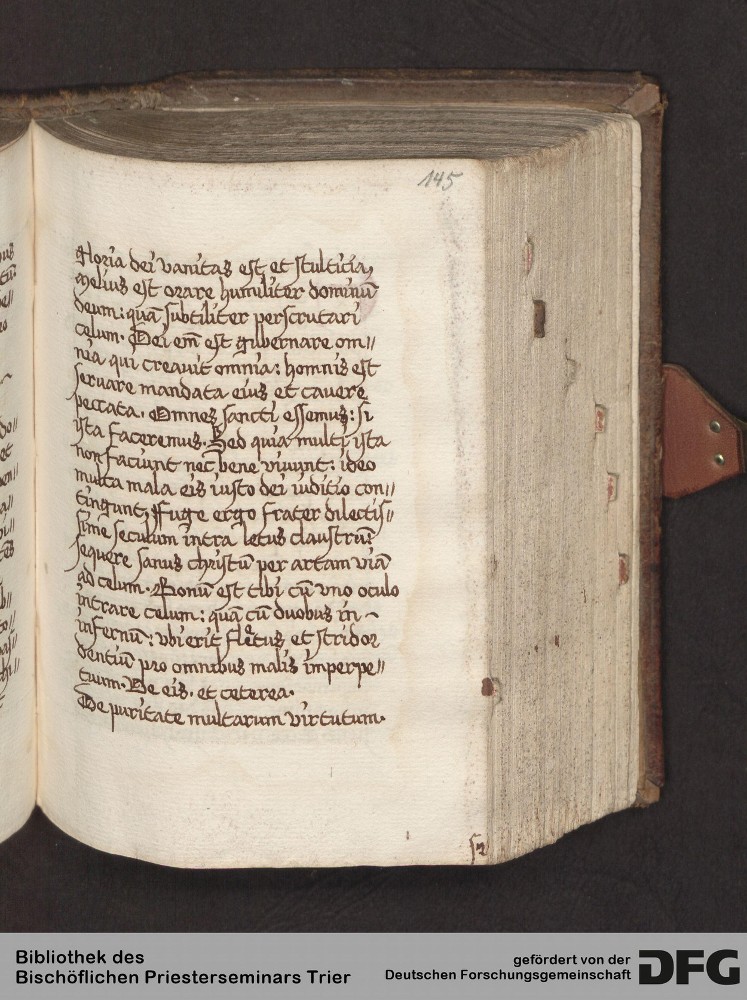 145
Gloria dei vanitas est et stulticia,
Melius est orare humiliter dominū
deum: quā subtiliter perscrutari
celum. Dei em̄ est gubernare om//
nia qui creavit omnia: homnis est
servare mandata eius et cavere
peccata. Omnes sancti essemus: si
ista faceremus. Sed quia multi ista
non faciunt nec bene vivunt: ideo
multa mala eis iusto dei iuditio con//
tingunt, Fuge ergo frater dilectis//
sime seculum intra letus claustrū:
sequere sanus christū per artam viā
ad celum. Bonū est tibi cū vno oculo
intrare celum: quā cū duobus in
infernū: vbi erit fletus et stridor
dentiū pro omnibus malis imperpe//
tuum. De eis. et ceterea.
De puritate multarum virtutum.
Bibliothek des
Bischöflichen Priesterseminars Trier
gefördert von der
Deutschen Forschungsgemeinschaft
DFG